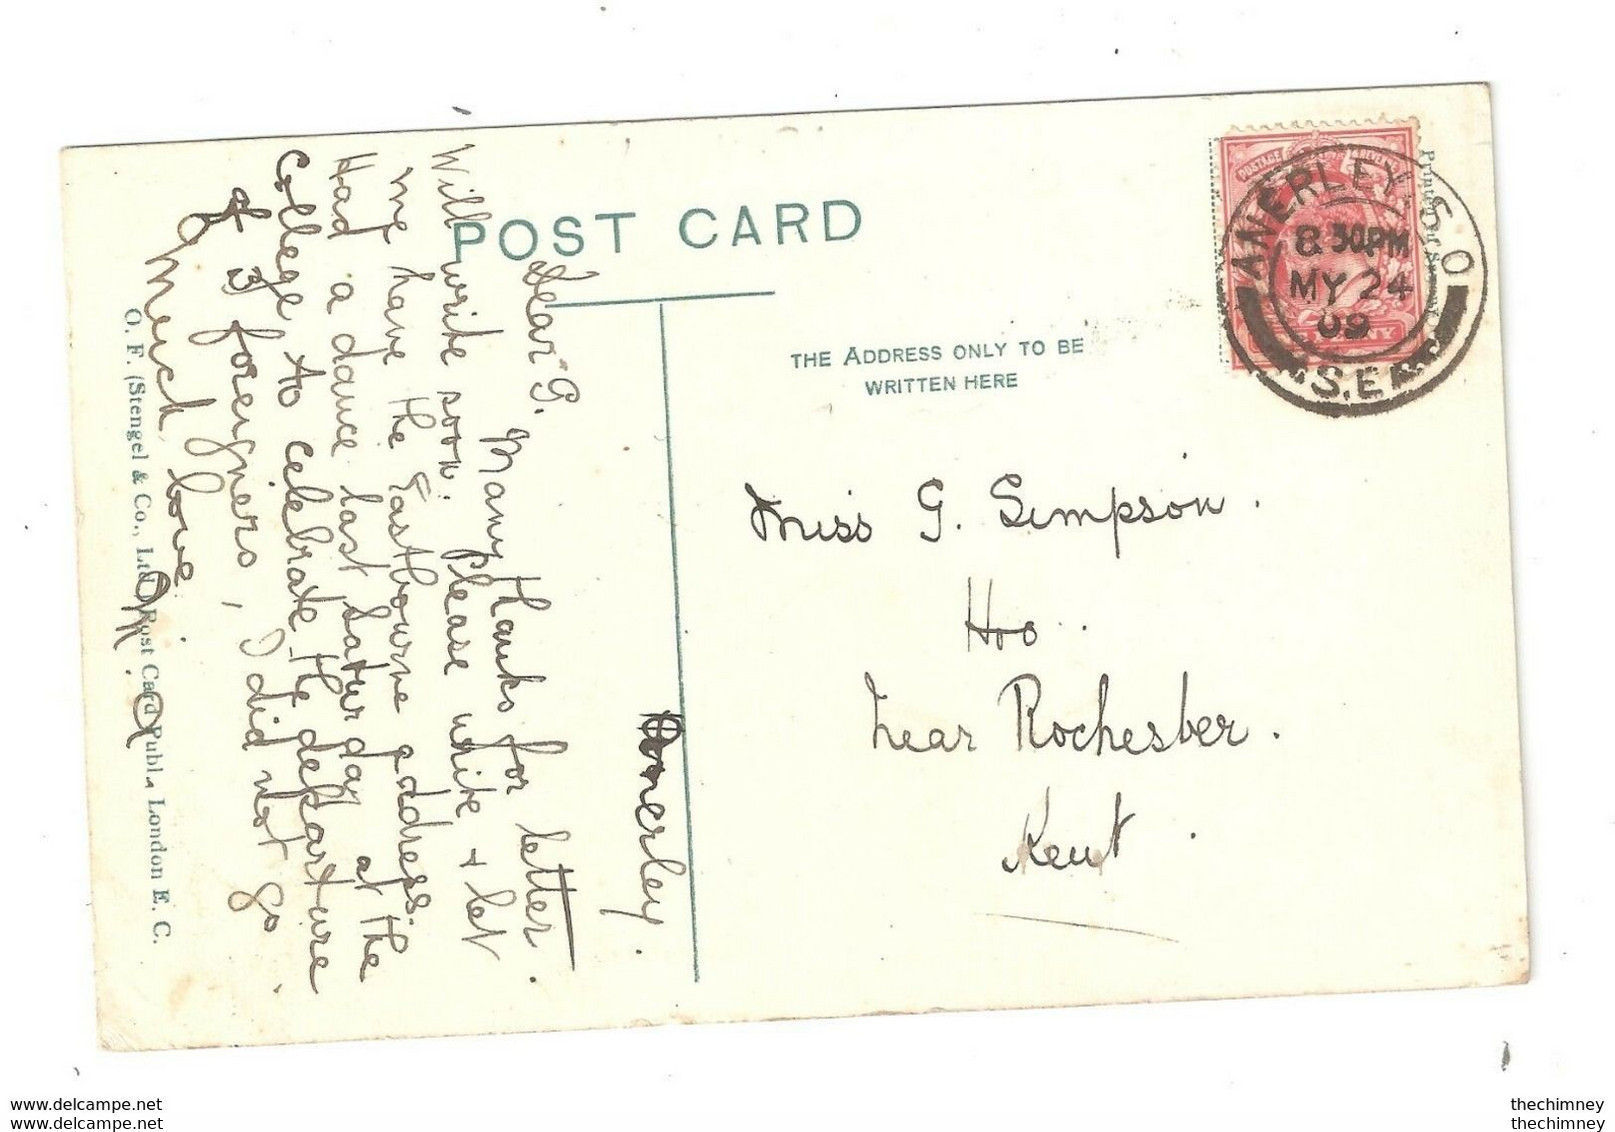 POST CARD
THE ADDRESS ONLY TO BE
WRITTEN HERE
POSTAGE REVENUE
ANERLEY S.O
8.30PM
MY 24
09
S.E.
Miss G. Simpson.
Hoo.
Near Rochester.
Kent.
Anerley.
Dear G. Many thanks for letter.
Will write soon. Please write & let
me have the Eastbourne address.
Had a dance last Saturday at the
College to celebrate the departure
of 3 foreigners, I did not go.
Much love.
O. F. (Stengel & Co., Ltd.) Post Card Publ., London E. C.
www.delcampe.net
www.delcampe.net
thechimney
thechimney